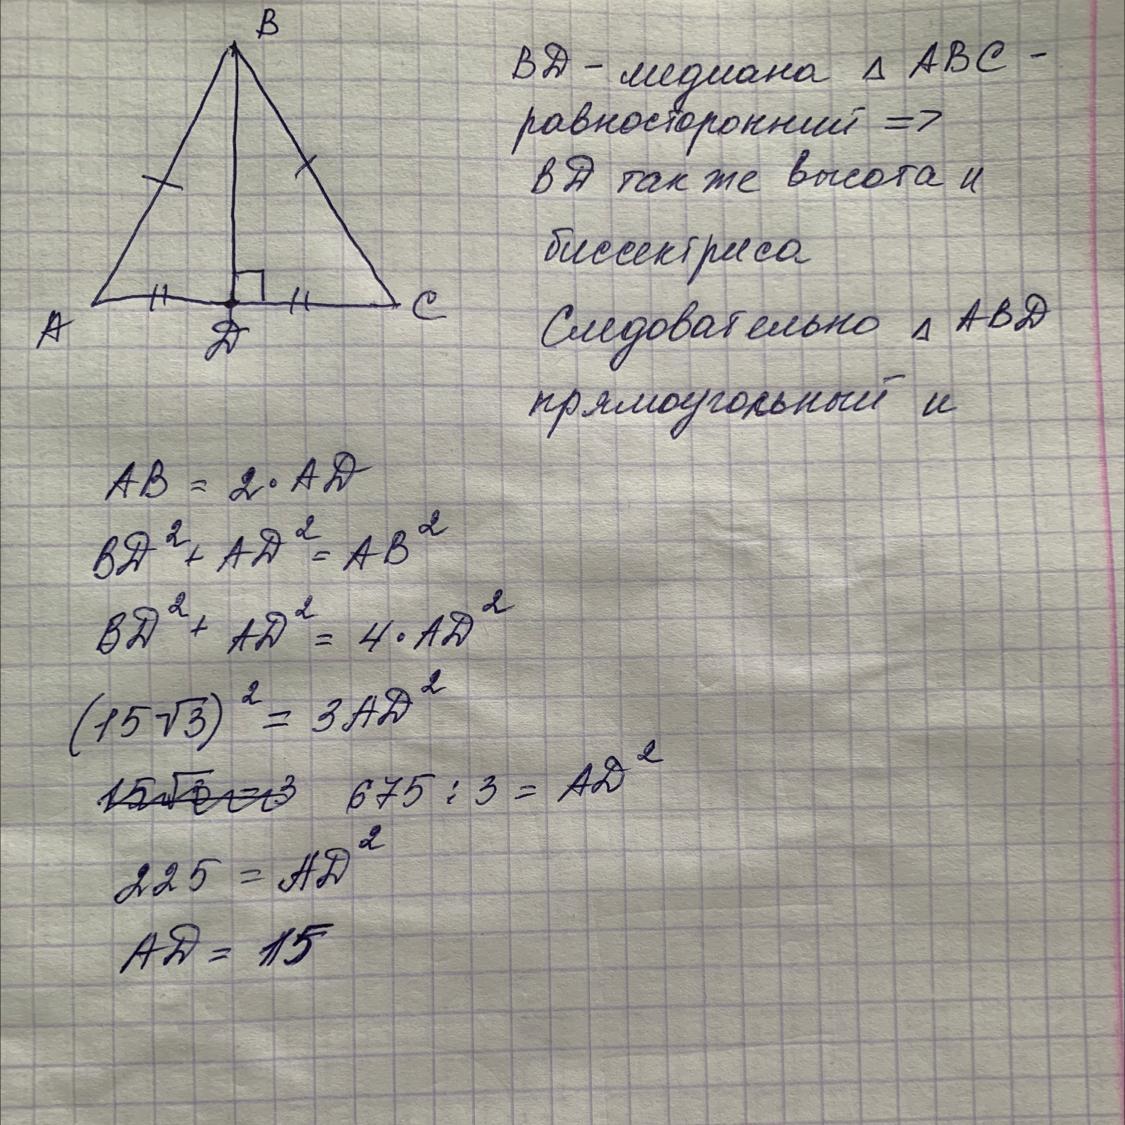 B
A
D
C
BD - медиана △ ABC -
равносторонний =>
BD также высота и
биссектриса
Следовательно △ ABD
прямоугольный и
AB = 2·AD
BD² + AD² = AB²
BD² + AD² = 4·AD²
(15√3)² = 3AD²
675 : 3 = AD²
225 = AD²
AD = 15